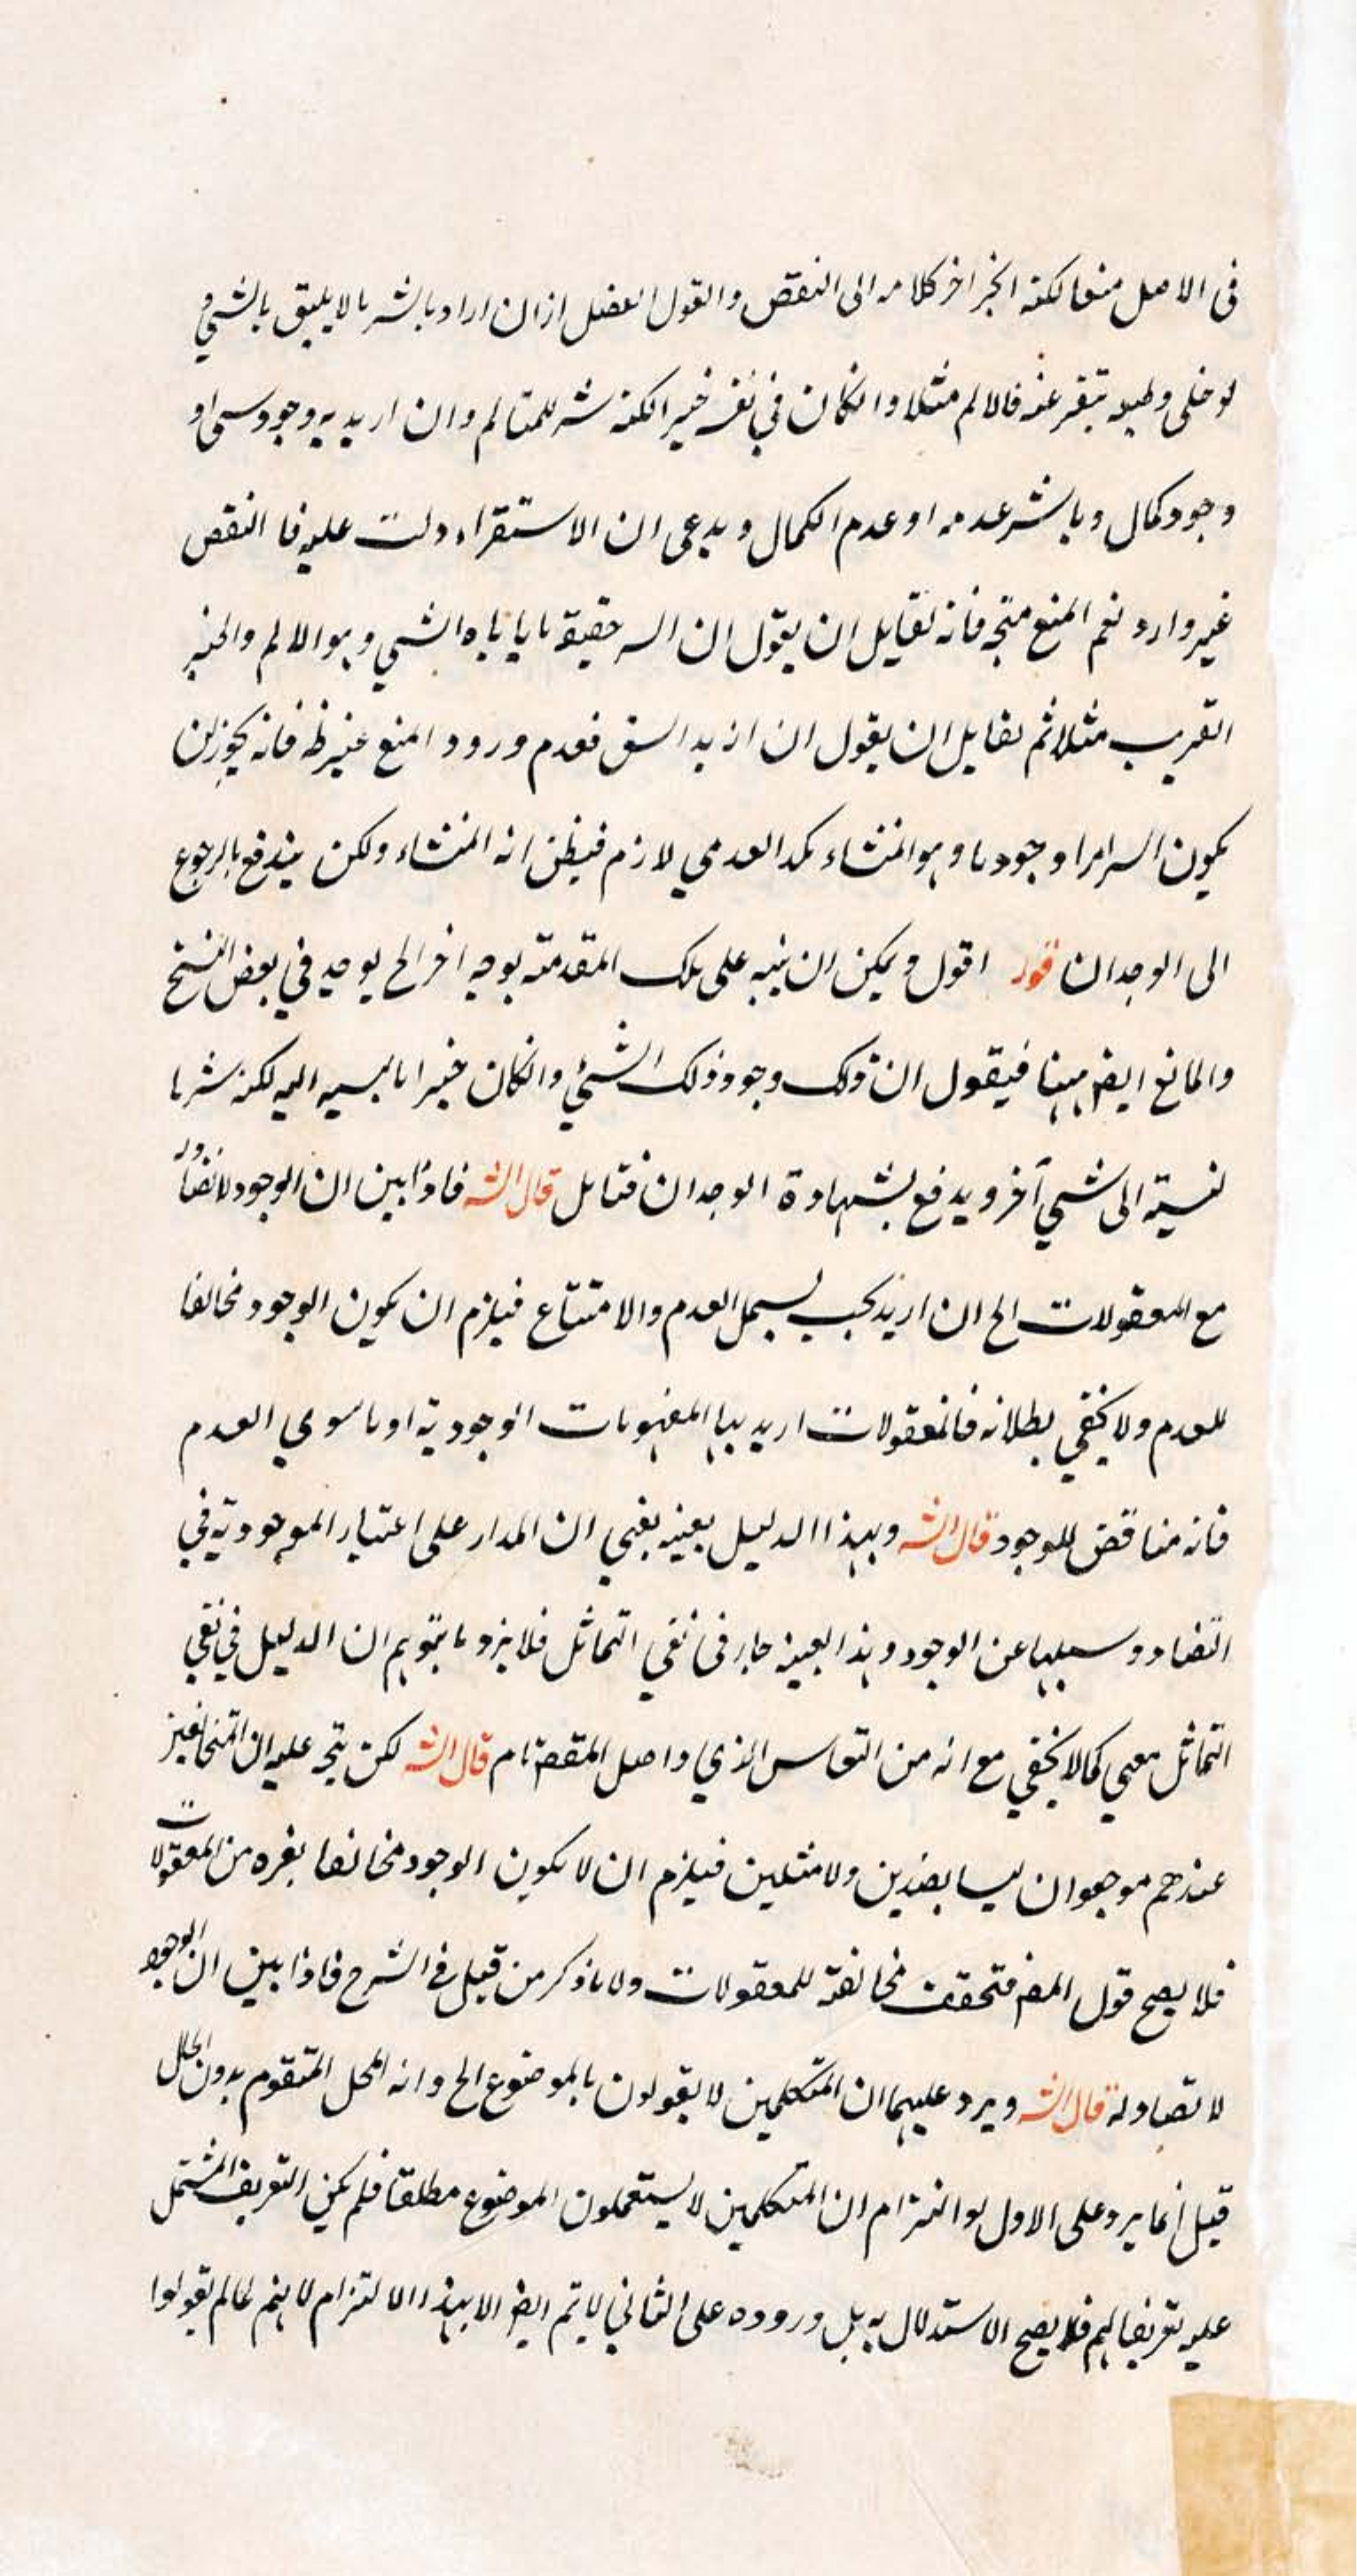 فى الاصل منعا لكنه الخبر اخر كلامه الى النقض والقول الفصل ازان اراد بالشر ما لا يليق بالشئ و
لو خلى وطبعه تنفر عنه فالالم مثلا وانكان في نفسه خيرا لكنه شر للمتالم وان اريد به وجود شئ او
وجود كمال وبالشر عدمه او عدم الكمال ويدعى ان الاستقراء دلت عليه فا النقض
غير وارد نعم المنع متجه فانه لقايل ان يقول ان الشر حقيقة ما ياباه الشئ وهو الالم و
القريب مثلا ثم لقايل ان يقول ان اريد الشق فعدم ورود المنع غير ظ فانه يجوز ان
يكون الشر امرا وجوديا وهو المنشاء لكن العدمي لازم فيظن انه المنشاء ولكن يندفع بالرجوع
الى الوجدان قوله اقول ويمكن ان ينبه على تلك المقدمة بوجه اخر الخ يوجد في بعض النسخ
والمانع ايضا ههنا فيقول ان ذلك وجود ذلك الشئ وانكان خيرا بالنسبه اليه لكنه شر بال
نسبته الى شئ آخر ويدفع بشهادة الوجدان فتامل قال الش فاذا بين ان الوجود لا تضاد له
مع المعقولات الخ ان اريد بحيث يشمل العدم والامتناع فيلزم ان يكون الوجود مخالفا
للعدم ولا يخفى بطلانه فالمعقولات اريد بها المفهومات الوجودية او ما سوي العدم
فانه مناقض للوجود قال الش وبهذا الدليل بعينه يعني ان المدار على اعتبار الموجودية في
التضاد وسلبها عن الوجود وهذا بعينه جار فى نفي التماثل فلا يرد ما يتوهم ان الدليل في نفي
التماثل معي كما لا يخفي مع انه من الذي واصل المقصد تام قال الش لكن يتجه عليه ان المتخالفين
عندهم موجودان ليسا بضدين ولا مثلين فيلزم ان لا يكون الوجود مخالفا لغيره من المعقولات
فلا يصح قول المص فتحققت مخالفته للمعقولات ولا ما ذكر من قبل في الشرح فاذا بين ان الوجود
لا تضاد له قال الش ويرد عليهما ان المتكلمين لا يقولون بالموضوع الخ وانه المحل المتقوم بدون الحال
قيل انما يرد على الاول لو التزام ان المتكلمين لا يستعملون الموضوع مطلقا فلم يكن التعريف المشتمل
عليه تعريفا لهم فلا يصح الاستدلال به بل وروده على الثاني لا يتم ايضا الا بهذا الالتزام لانهم لما لم يقولوا